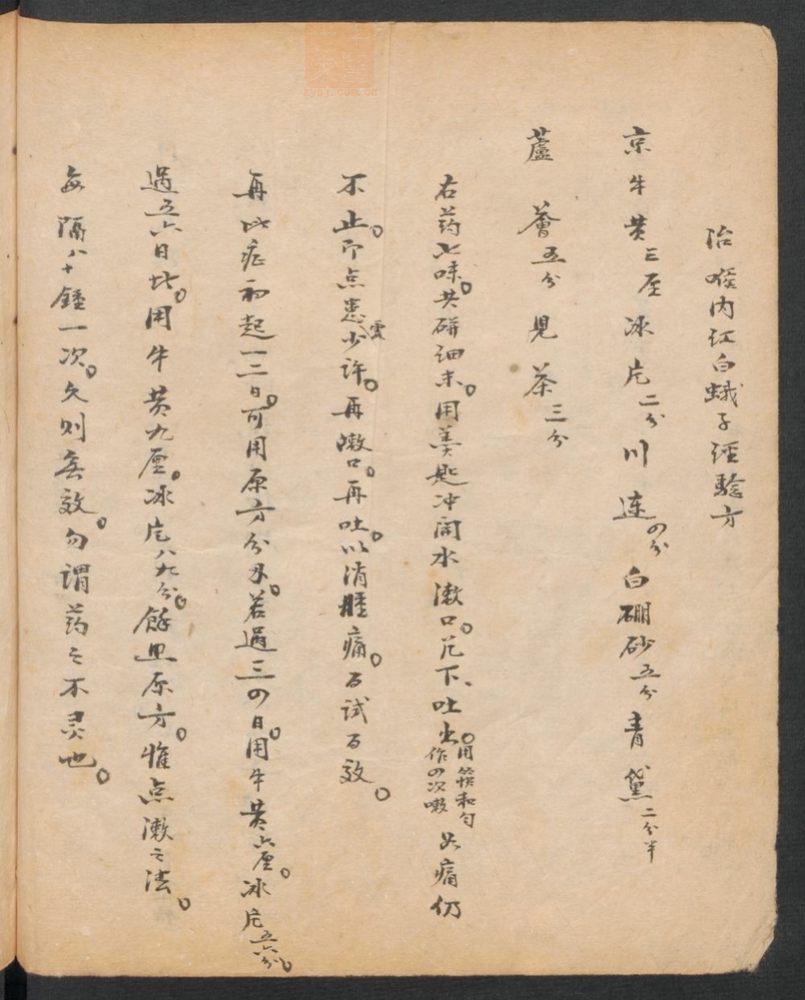 治喉内红白蛾子經騐方
京牛黄三厘 冰片二分 川連四分 白硼砂五分 青黛二分半
蘆薈五分 見茶三分
右药七味。共研细末。用羹匙冲開水漱口。咒下、吐出。用筷和匀作四次嗽 如痛仍
不止。即点患處少许。再嗽口。再吐。以消腫痛。百试百效。
再此症初起一二日。可用原方分两。若過三四日。用牛黄六厘。冰片五六分。
過五六日此。用牛黄九厘。冰片八九分。餘照原方。惟点漱之法。
每隔八十鐘一次。久则無效。勿谓药之不灵也。